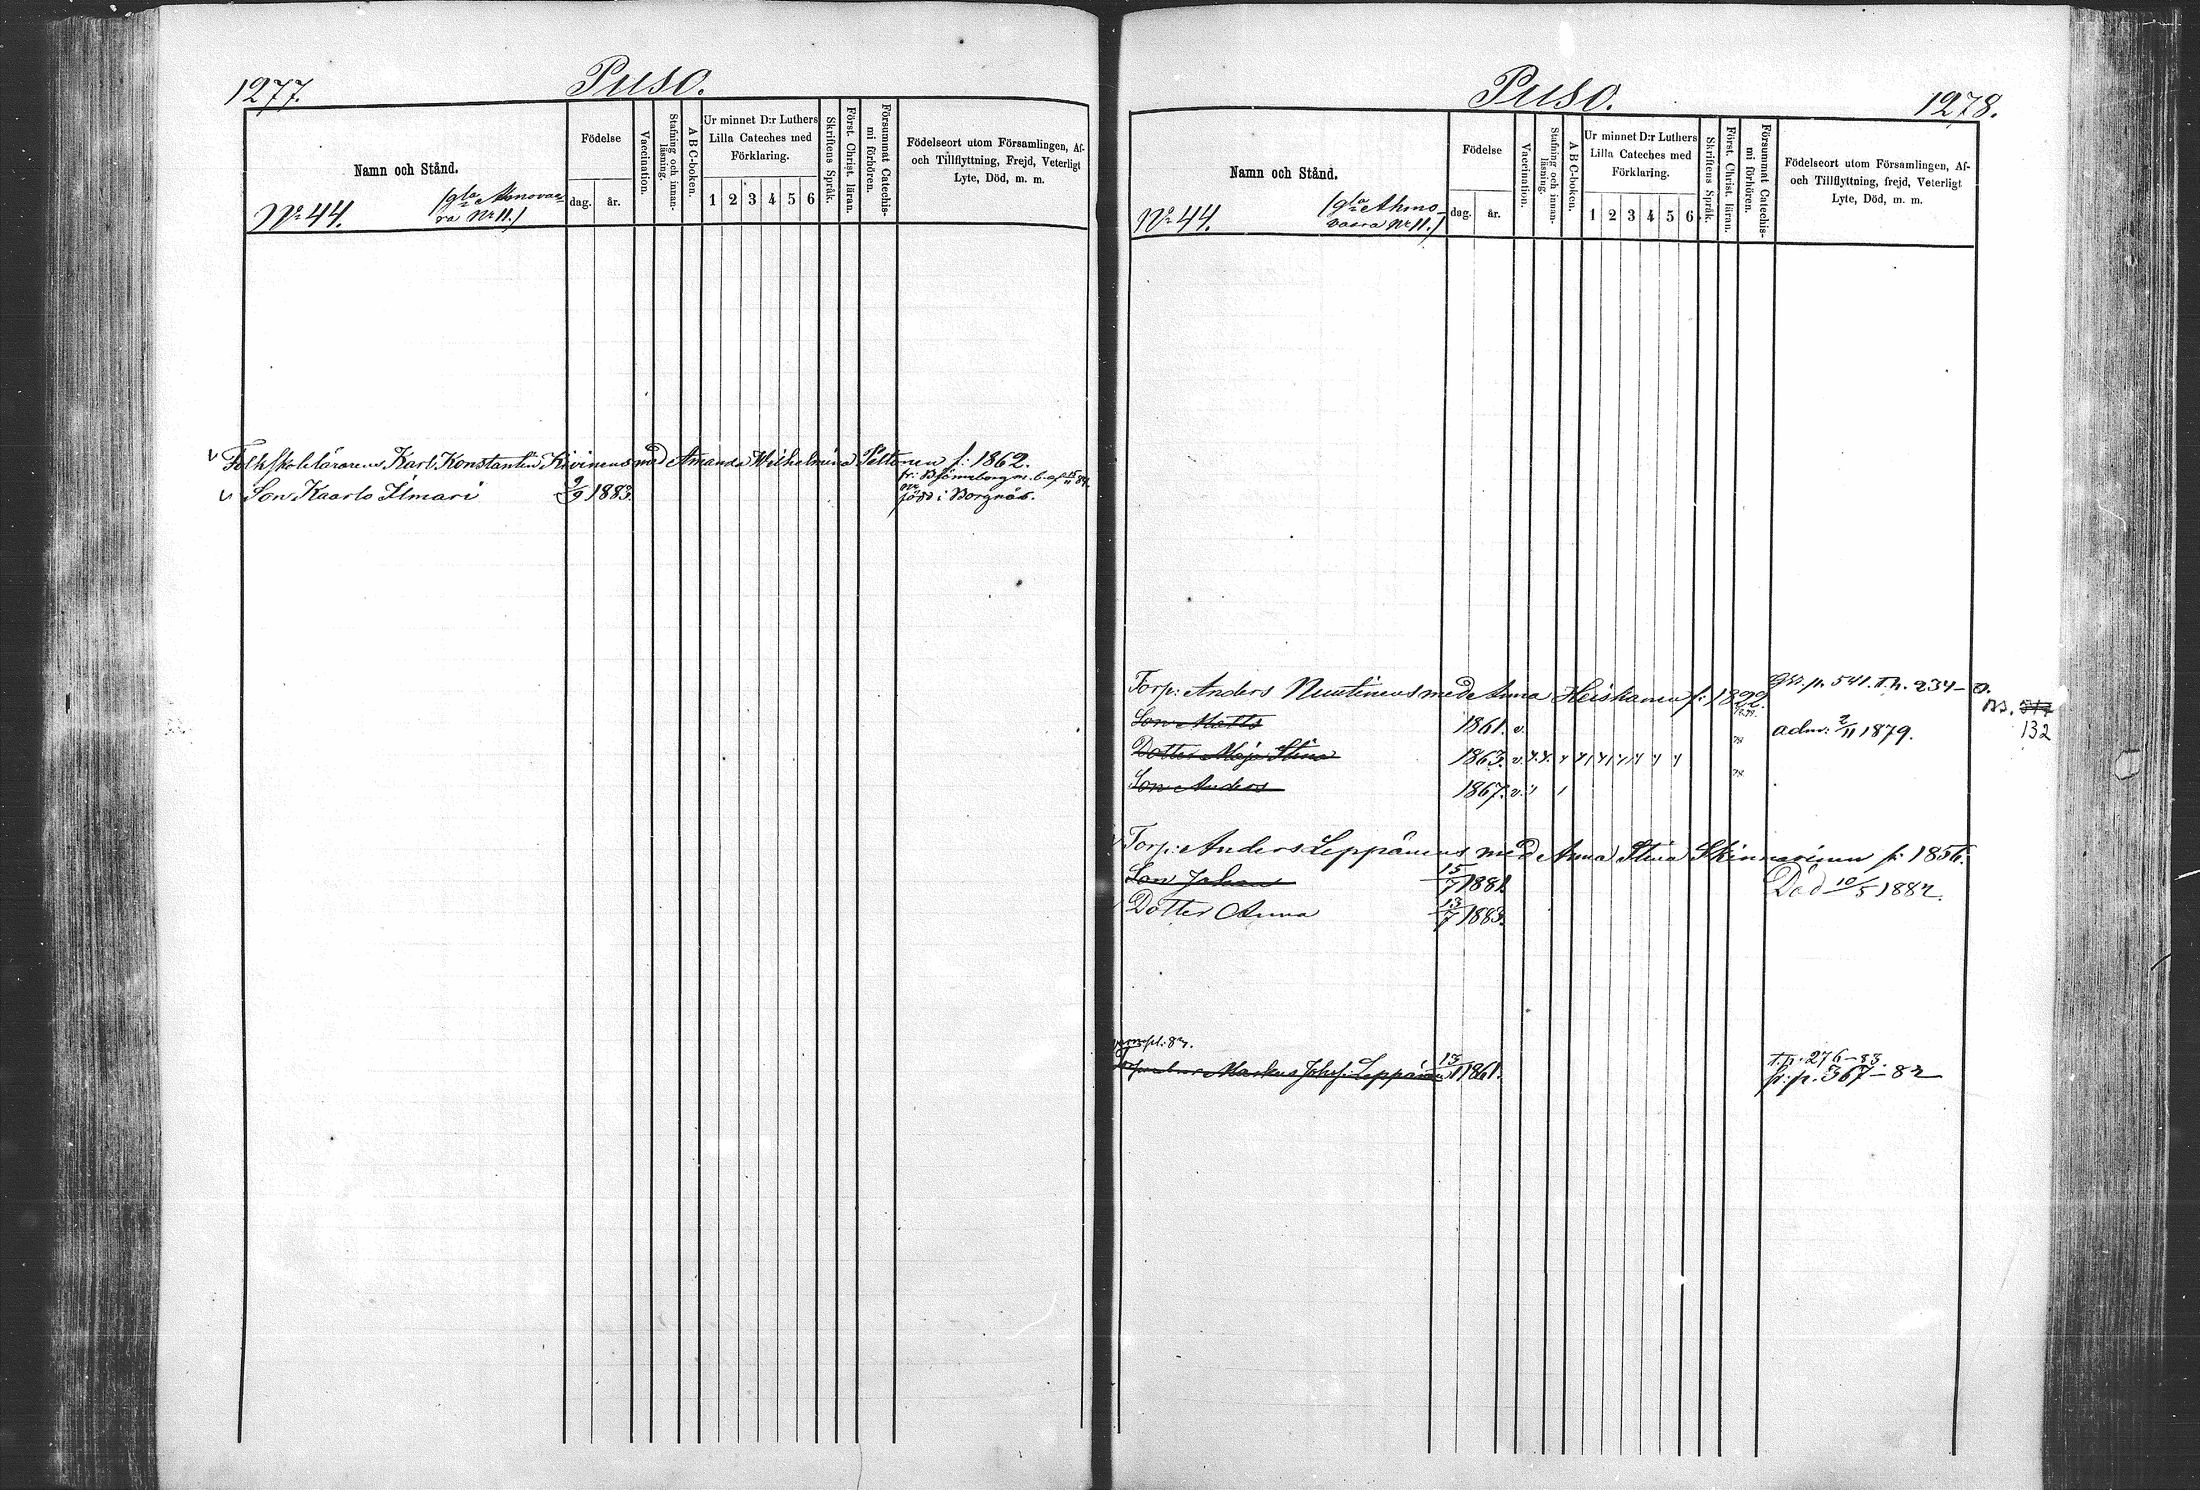 1277.
Puso.
Namn och Stånd.
Födelse
dag. år.
Vaccination.
Stafning och innan-
läsning.
A B C-boken.
Ur minnet D:r Luthers
Lilla Cateches med
Förklaring.
1 2 3 4 5 6
Skriftens Språk.
Först. Christ. läran.
Försummat Catechis-
mi förhören.
Födelseort utom Församlingen, Af-
och Tillflyttning, Frejd, Veterligt
Lyte, Död, m. m.
No 44.
va No 11.)
Folkskolelärarens Karl Konstantin Kivinens med Amanda Wilhelmina Peltonen f: 1862.
fr: Björneborg m. b. af 15/11 84.
v Son Kaarlo Ilmari 9/9 1883.
född i Borgnäs.
Puso.
1278.
Namn och Stånd.
Födelse
dag. år.
Vaccination.
Stafning och innan-
läsning.
A B C-boken.
Ur minnet D:r Luthers
Lilla Cateches med
Förklaring.
1 2 3 4 5 6
Skriftens Språk.
Först. Christ. läran.
Försummat Catechis-
mi förhören.
Födelseort utom Församlingen, Af-
och Tillflyttning, frejd, Veterligt
Lyte, Död, m. m.
No 44.
(gla Ahmo-
vaara No 11.)
Torp: Anders Nuutinens med Anna Heiskanen f: 1822.
p. 541. T.h. 234-
Son Matts 1861. v.
adm: 2/11 1879.
132
Dotter Maja Stina 1863. v.
Son Anders 1867. v.
Torp: Anders Leppänens med Anna Stina Skinnarinen f: 1856.
Son Johan 15/7 1881.
Död 10/5 1882.
Dotter Anna 13/7 1883.
Markus Johs: Leppänen 13/1 1861.
T.p. 276-83.
fr: p. 367-82